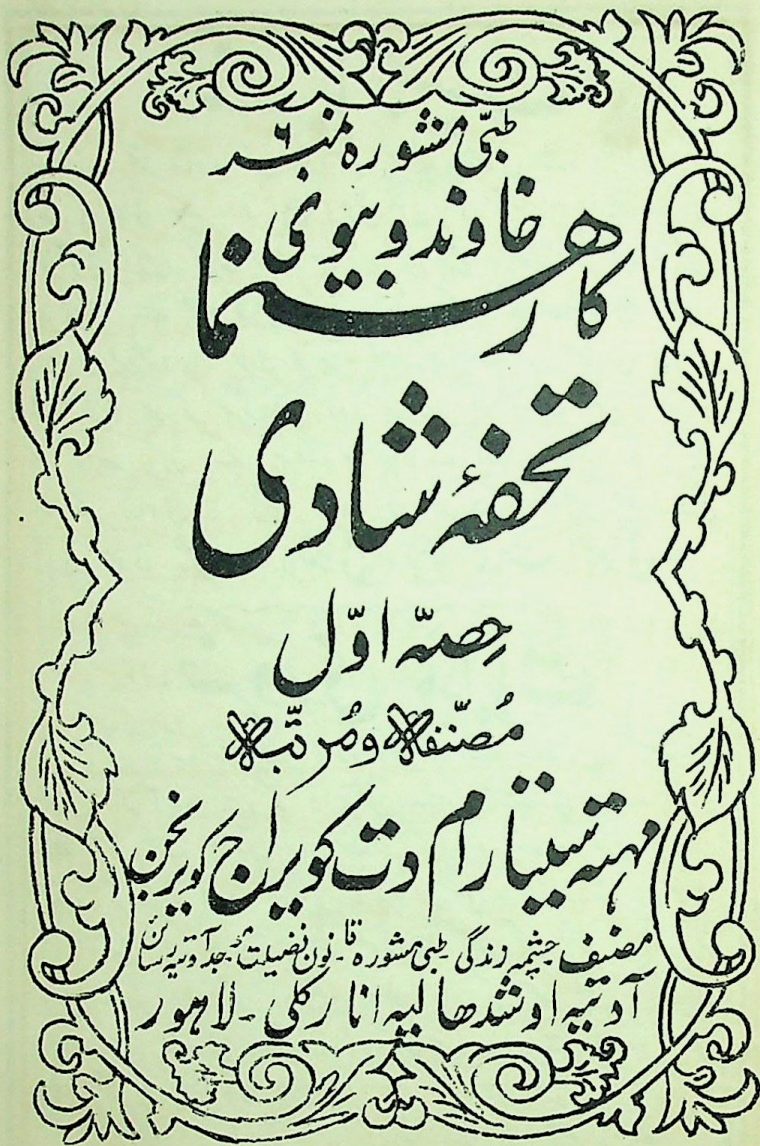 طبّی مشورہ نمبر ۶
خاوند و بیوی
کا رهنما
تحفۂ شادی
حصّہ اوّل
مُصنّفہ و مُرتّبہ
مہتہ سیتا رام دت کویراج کویرنجن
مصنف چشمہ زندگی طبی مشورہ قانون فضیلت موجد آدتیہ رسائن
آدتیہ اوشدھالیہ انارکلی - لاہور